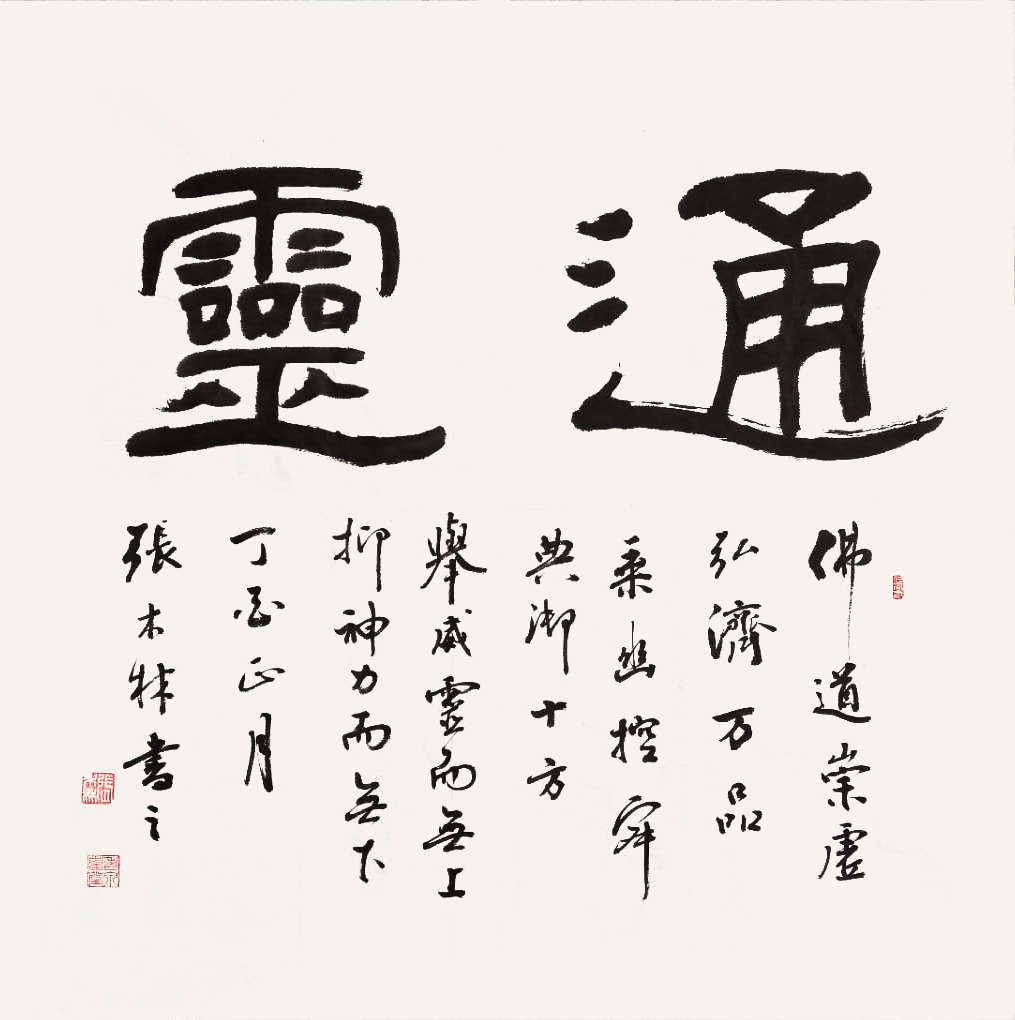 通靈
佛道崇虛
弘濟万品
乘幽控寂
典御十方
舉威靈而無上
抑神力而無下
丁酉正月
張木林書之